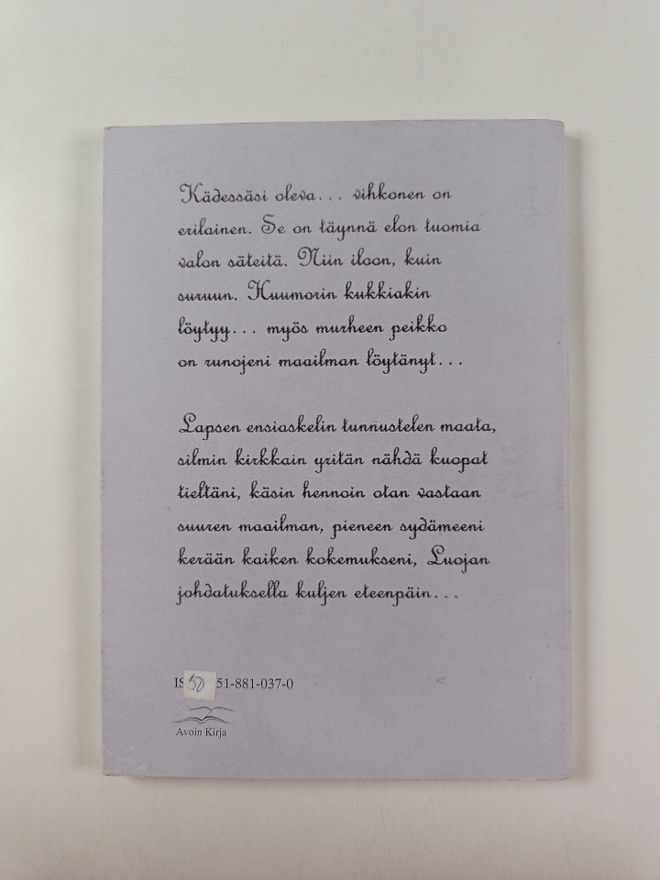 Kädessäsi oleva... vihkonen on
erilainen. Se on täynnä elon tuomia
valon säteitä. Niin iloon, kuin
suruun. Huumorin kukkiakin
löytyy... myös murheen peikko
on runojeni maailman löytänyt...
Lapsen ensiaskelin tunnustelen maata,
silmin kirkkain yritän nähdä kuopat
tieltäni, käsin hennoin otan vastaan
suuren maailman, pieneen sydämeeni
kerään kaiken kokemukseni, Luojan
johdatuksella kuljen eteenpäin...
IS 51-881-037-0
Avoin Kirja